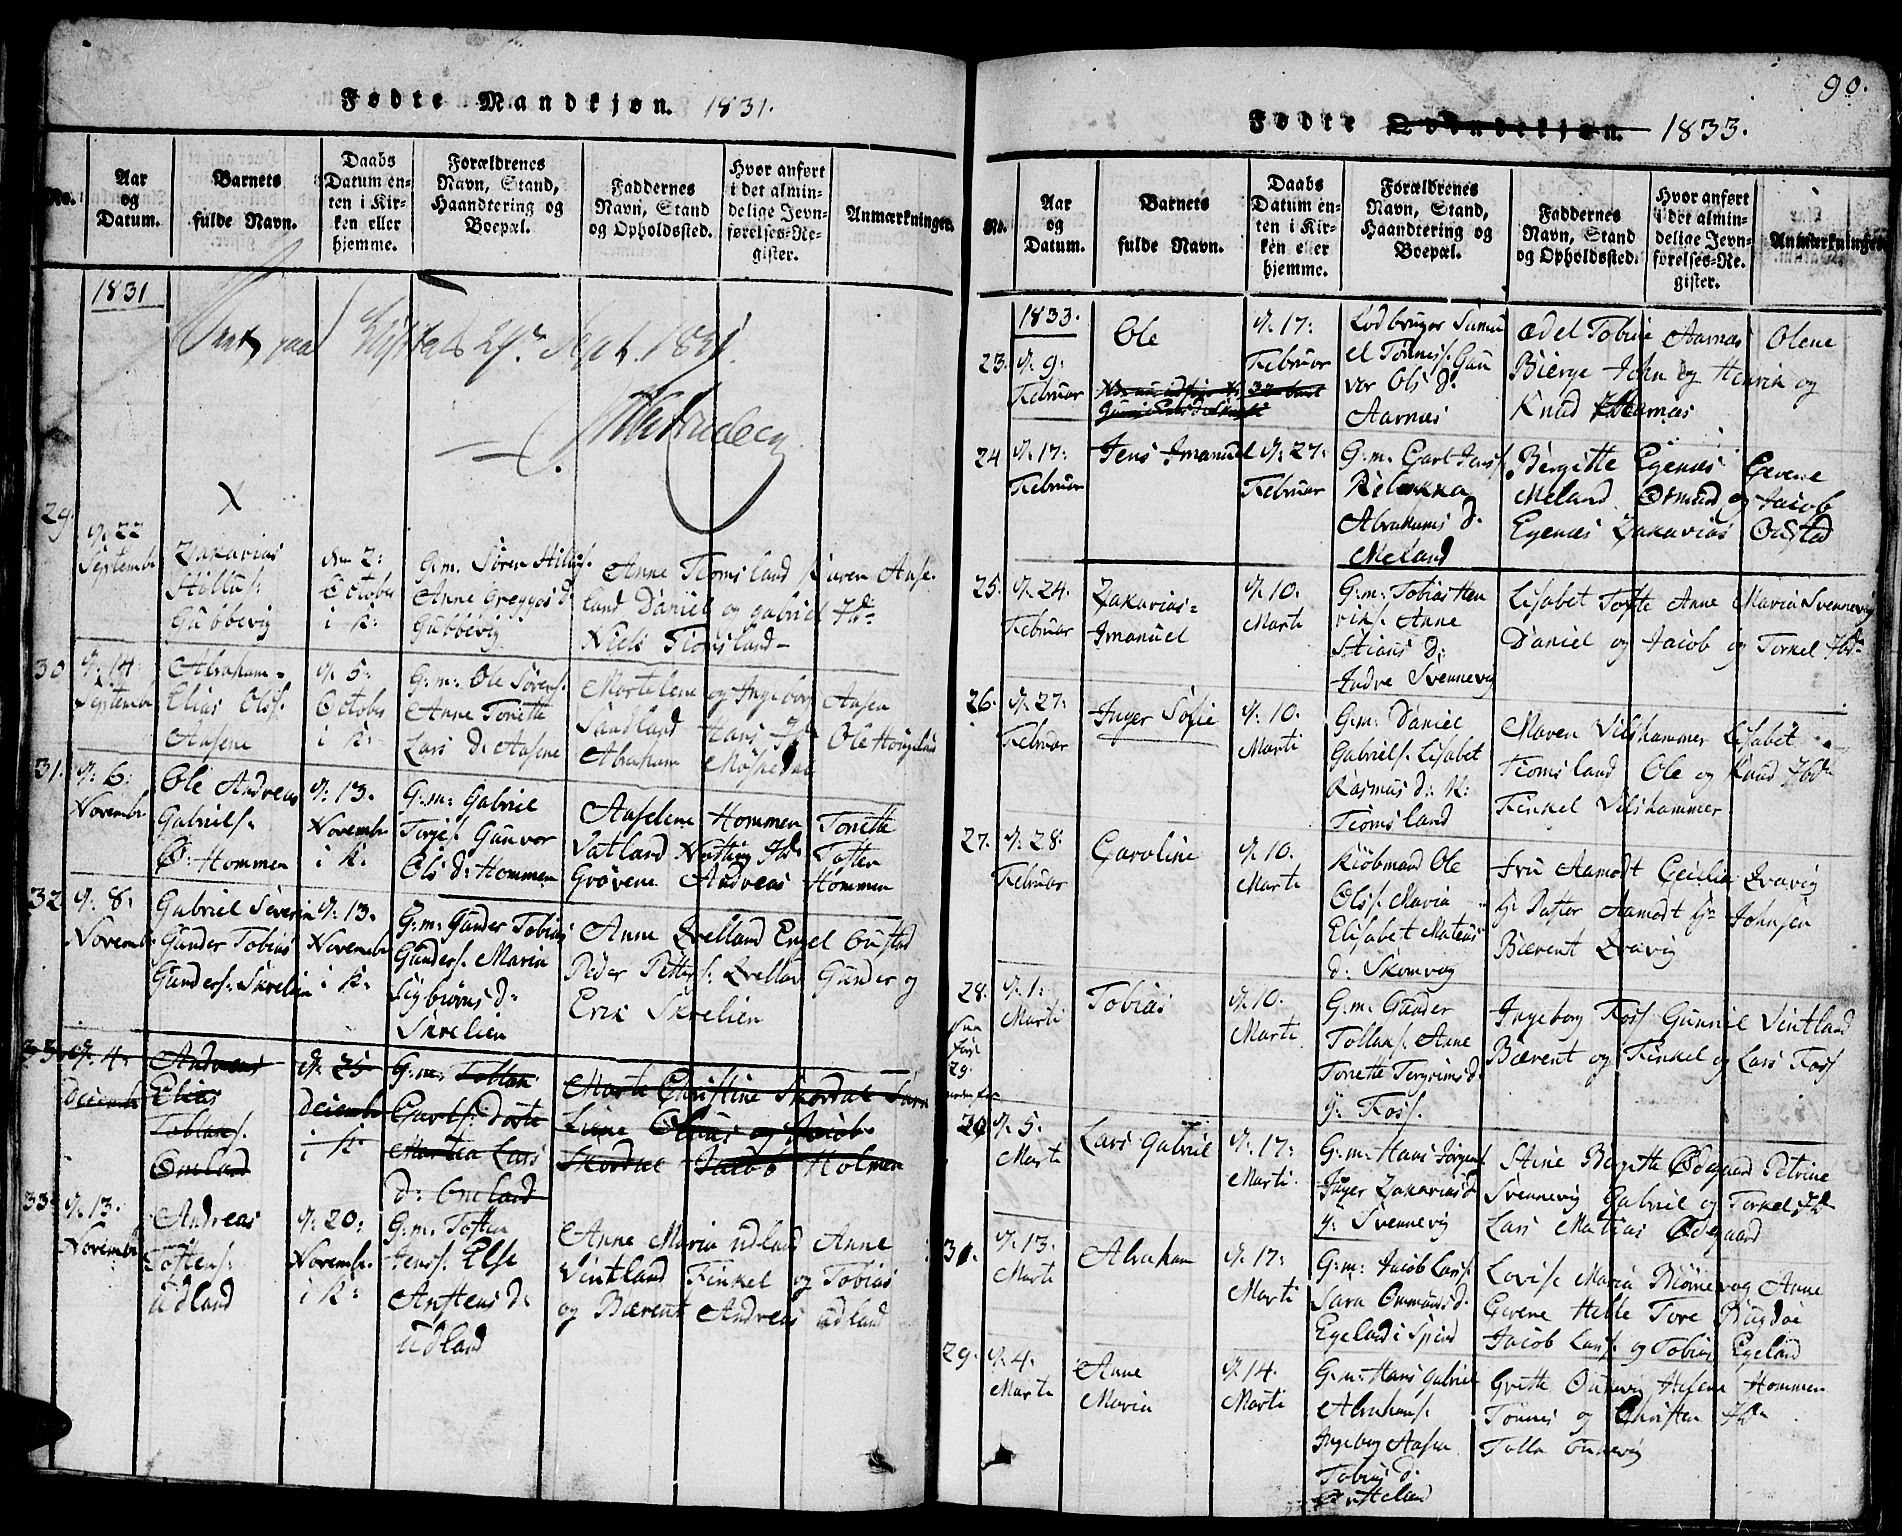 Fødte Mandkjøn. 1831.
No.
Aar og Datum.
Barnets fulde Navn.
Daabs Datum enten i Kirken eller hjemme.
Forældrenes Navn, Stand, Haandtering og Boepæl.
Faddernes Navn, Stand og Opholdssted.
Hvor anført i det almindelige Jevnførelses-Register.
Anmærkninger.
1831
29.
d. 22 September
Zakarias
Gubbevig
den 2: October i K:
G.m. Sören
Anne Greggos d:
Gubbevig
Anne Tiomsland Karen Aase
land Daniel og Gabriel Ibd:
Niels Tiomsland
30
d. 14 September
Abraham
Elias Ols.
Aasene
d. 5. October i K.
G.m: Ole Sörens.
Anne Tonette
Lars d: Aasene
Martelene og Ingeborg Aasen
Sandland Hans
Abraham Möskedal
31.
d. 6: Novembr
Ole Andreas
Gabriels.
Ö: Hommen
d. 13. Novembr i K.
G:m: Gabriel
Gunvor
Ols d: Hommen
Aaselene Hommen Tonette
Vatland Ibd: Totten
Grövene Andreas Hommen
32
d. 8: Novembr
Gabriel Severin
Gunder Tobias
Gunders: Skrelien
d. 13. Novembr i K.
G:m: Gunder Tobias
Gunders. Maria
Sigbiörns d:
Skrelien
Anne Qvelland Engel Oustad
Peder Petters. Qvelland Gunder og
Erik Skrelien
33.
d. 4: Decembr
Andreas
Elias
Tollans.
Omland
d. 25 Decembr i K.
G:m: Tollan
Garts. Dorte
Martea Lars
d: Omland
Marte Christine Skordal Sara
Liene Olaus og Jacob
Skordal Jacob Holmen
33.
d. 13. Novembr
Andreas
Tostens:
Udland
d. 20: Novembr. i K:
G:m. Tosten
Jens. Else
Anstens d:
Udland
Anne Maria Udland Anne
Vintland Finkel og Tobias
og Bærent Andreas Udland
90.
Fødte Qvindekjøn. 1833.
No.
Aar og Datum.
Barnets fulde Navn.
Daabs Datum enten i Kirken eller hjemme.
Forældrenes Navn, Stand, Haandtering og Boepæl.
Faddernes Navn, Stand og Opholdssted.
Hvor anført i det almindelige Jevnførelses-Register.
Anmærkninger.
1833.
23.
d. 9: Februar
Ole
d. 17: Februar
Lodbruger Samu
el Tönnes. Gun
vor Ols d:
Aarnæs
Ædel Tobine Aarnæs Olene
Bierge John og Henrik og
Knud Aarnæs
24
d. 17: Februar
Jens Imanuel
d. 27: Februar
G.m. Gart Jens.
Rebekka
Abrahams d.
Meland
Bergitte Egenæs Gevene
Meland Osmund og Jacob
Egenæs Zakarias Oustad
25.
d. 24. Februar
Zakarias=
Imanuel
d. 10. Marti
G:m: Tobias Hen
riks. Anne
Stians d:
Indre Svennevig
Lisabet Tofte Anne Maria Svennevig
Daniel og Jacob og Torkel Ibd:
26.
d. 27: Februar
Inger Sofie
d. 10. Marti
G:m: Daniel
Gabriels. Lisabet
Rasmus d: K:
Tiomsland
Maren Vilshammer Lisabet
Tiomsland Ole og Knud Ibd:
Finkel Vilshammer
27.
d. 28: Februar
Caroline
d. 10. Marti
Kiöbmand Ole
Ols. Maria
Elisabet Mateus
d: Skomvog
Fru Aamodt Cecilia Qvavig
Hr Pastor Aamodt Hr Johnsen
Bærent Qvavig
28.
d. 1: Marti
Tobias
d. 10. Marti
G:m: Gunder
Tollans. Anne
Tonette Tergrims d:
Y: Foss.
Ingeborg Foss Gunvil Vintland
Bærent og Finkel og Lars Foss
d. 5. Marti
Lars Gabriel
d. 17: Marti.
G:m: Hans Jörgens.
Inger Zakarias d
Y: Svennevig
Stine Bergitte Ödegaard Petrine
Svennevig Gabriel og Torkel Ibd:
Lars Matias Ödegaard
d. 13. Marti
Abraham
d. 17: Marti
G:m: Jacob Lars.
Sara Ommunds d.
Egeland i Spind
Lovise Maria Biörnevog Anne
Gevene Helle Tore Bugdøe
Jacob Lars. og Tobias Egeland
29.
d. 4. Marti
Anne
Maria
d. 14 Marti
G:m: Hans Gabriel
Abrahams.
Ingeborg Aasen
Tobias d.
Grette Ounevig Aasene Hommen
Tönnes og Christen Ibd:
Tolla Ounevig